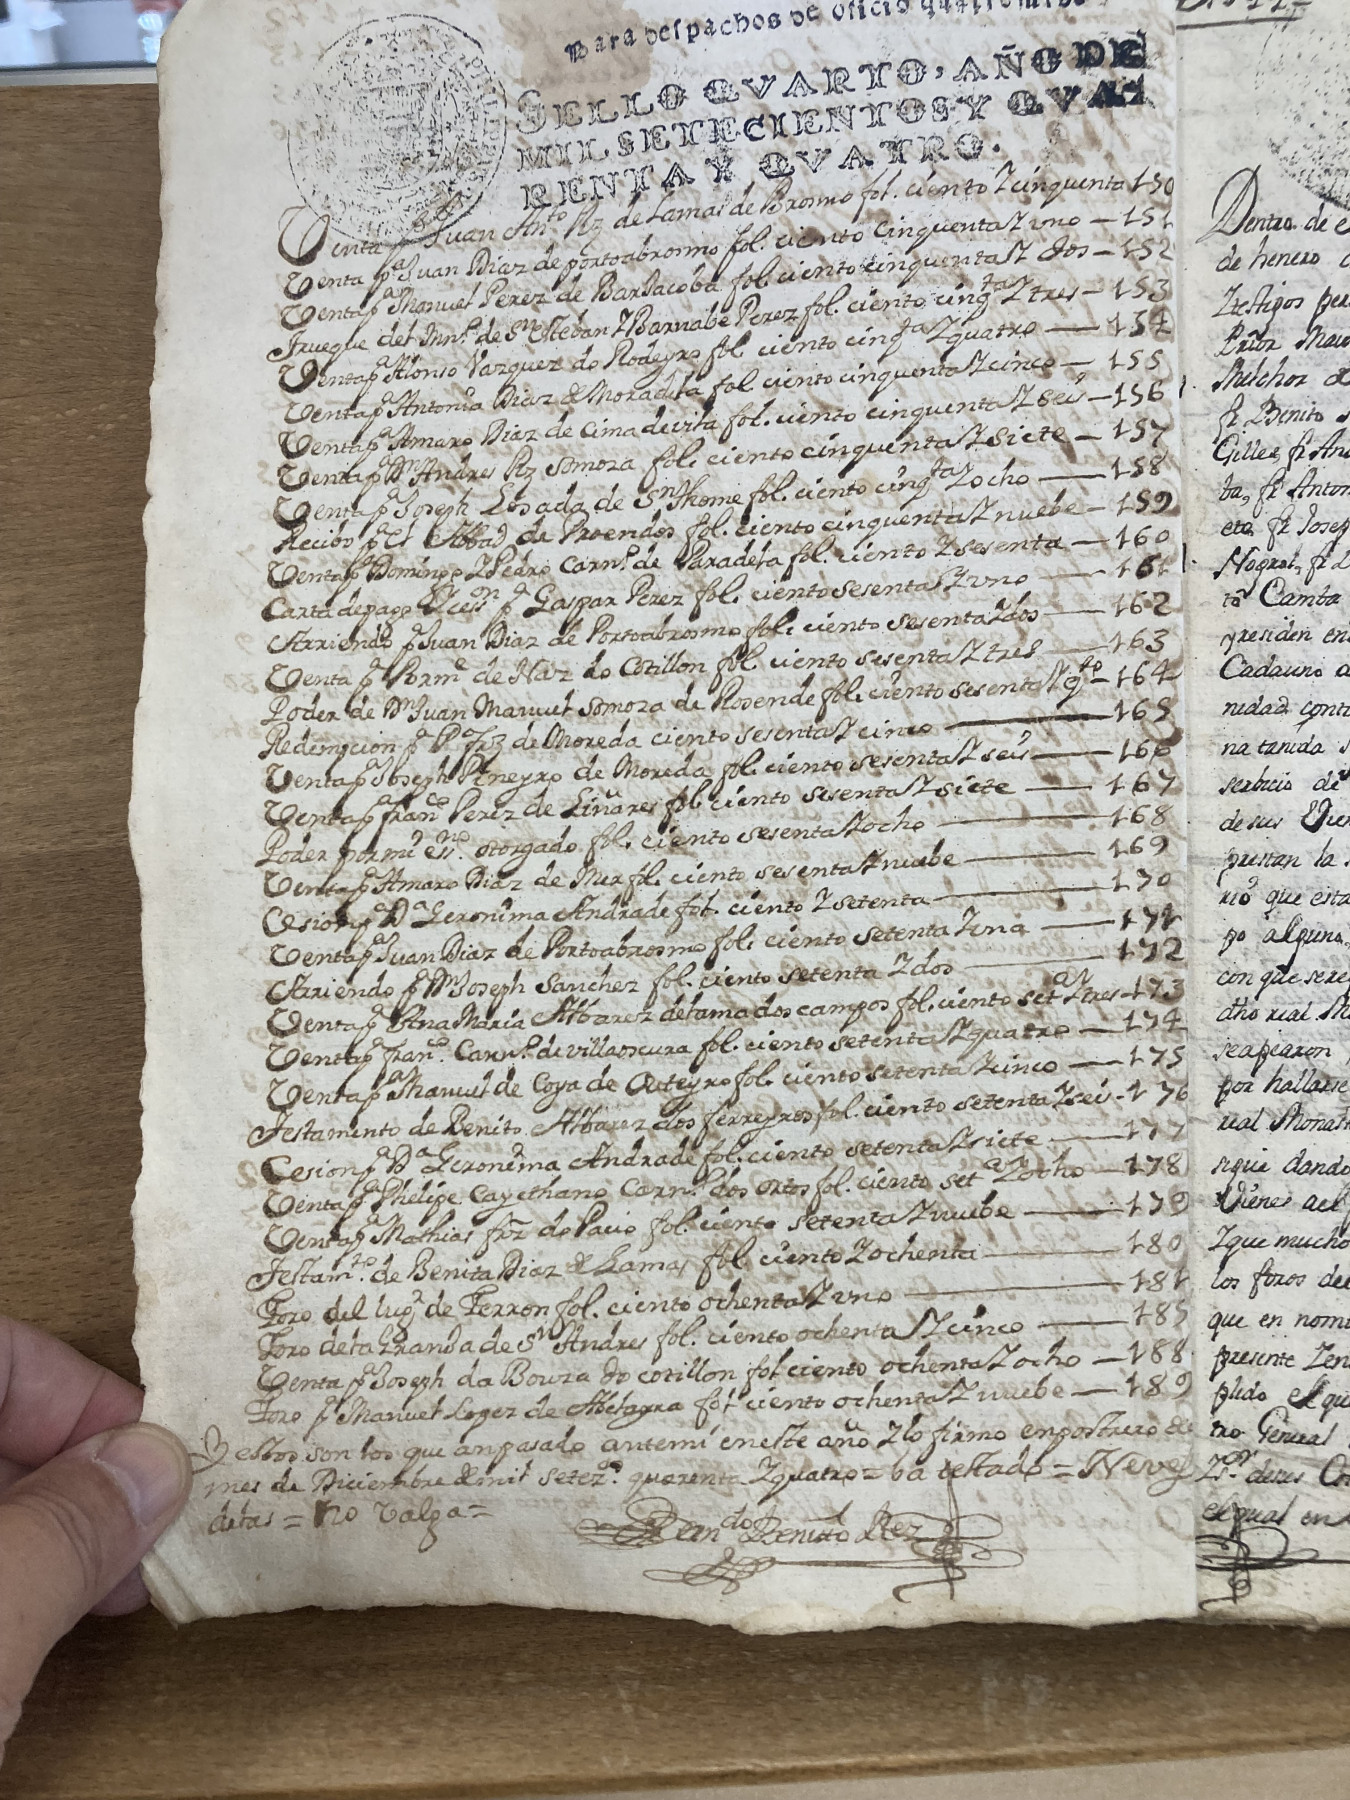 Para despachos de oficio quatro mrs.
SELLO QVARTO, AÑO DE
MIL SETECIENTOS Y QVA-
RENTA Y QVATRO.
Venta pr Juan Anto Rz de Lamas de Bronmo fol. ciento Zcinquenta 150
Venta pa Juan Diaz de portoabronmo fol. ciento cinquentaZ vno — 151
Venta pa Manuel Perez de Bardacoba fol. ciento cinquentaZ dos — 152
Trueque del Mnro. de Sn Esteban ZBarnabe Perez fol. ciento cinqta Ztres — 153
Venta pa Alonso Vazquez do Rodeyro fol. ciento cinqta Zquatro — 154
Venta pa Antonia Diaz de Moradela fol. ciento cinquentaZ cinco — 155
Venta pa Amaro Diaz de Cima devila fol. ciento cinquentaZ seis — 156
Venta pa Dn Andres Rz Somoza fol. ciento cinquentaZ siete — 157
Venta pa Joseph Losada de Sn thome fol. ciento cinqta Zocho — 158
Recibo pa el Abbad de Proendos fol. ciento cinquentaZ nuebe — 159
Venta pa Domingo ZPedro Carnro. de Paradela fol. ciento Zsesenta — 160
Carta depago Zcesn pa Gaspar Perez fol. ciento sesentaZ vno — 161
Arriendo pa Juan Diaz de Portoabronmo fol. ciento sesentaZdos — 162
Venta pa de Naz do Cotillon fol. ciento sesentaZ tres — 163
Poder de Dn Juan Manuel Somoza de Rosende fol. ciento sesentaZ qto — 164
Redempcion pa Po frz de Moreda ciento sesentaZ cinco — 165
Venta pa Joseph Pineyro de Moreda fol. ciento sesentaZ seis — 166
Venta pa Franco Perez de Liñares fol. ciento sesentaZ siete — 167
Poder por mi esno. otorgado fol. ciento sesentaZocho — 168
Venta pa Amaro Diaz de Mer fol. ciento sesentaZ nuebe — 169
Cesion pa Da Geronima Andrade fol. ciento Zsetenta — 170
Venta pa Juan Diaz de Portoabronmo fol. ciento setenta Zuna — 171
Arriendo pa Dn Joseph Sanchez fol. ciento setenta Zdos — 172
Venta pa Ana Maria Albarez delama dos campos fol. ciento seta Ztres — 173
Venta pa Franco. Carnro. de villaoscura fol. ciento setentaZ quatro — 174
Venta pa Manuel de Coya de Outeyro fol. ciento setentaZ cinco — 175
Testamento de Benito Albarez dos ferreyros fol. ciento setentaZ seis - 176
Cesion pa Da Geronima Andrade fol. ciento setentaZ siete — 177
Venta pa Phelipe Cayethano Carnro. dos ortos fol. ciento seta Zocho — 178
Venta pa Mathias frz do Pacio fol. ciento setentaZ nuebe — 179
Testamto. de Benita Diaz de Lamas fol. ciento Zochenta — 180
Foro del lugr de Ferron fol. ciento ochentaZ vno — 181
Foro dela Granda de Sn Andres fol. ciento ochentaZ cinco — 185
Venta pa Joseph da Bouza do cotillon fol ciento ochentaZ ocho — 188
Foro pa Manuel Lopez de Abelayra fol ciento ochentaZ nuebe — 189
Y estos son los que an pasado antemi eneste año Zlo firmo enpostrero de
mes de Diciembre de mil setezs. quarenta Zquatro = ba testado = Neve
detas = No valga =
Benito Rez
Dentro de
de henero
Ztestigos
Prior Mau
Melchor
fr Benito
Gilles, fr An
ba, fr Anton
eta fr Josep
Nogral, fr
to Camba
presiden en
Cadauno
nidad cont
na tanida
serbicio de
desus
prestan la
rio que esta
po alguna
con que sere
dho real M
seapearon
por hallarse
real Monast
sigue dando
Vienes
Zque mucho
los foros de
que en nom
presente
plido el que
tro General
desus Co
el qual en